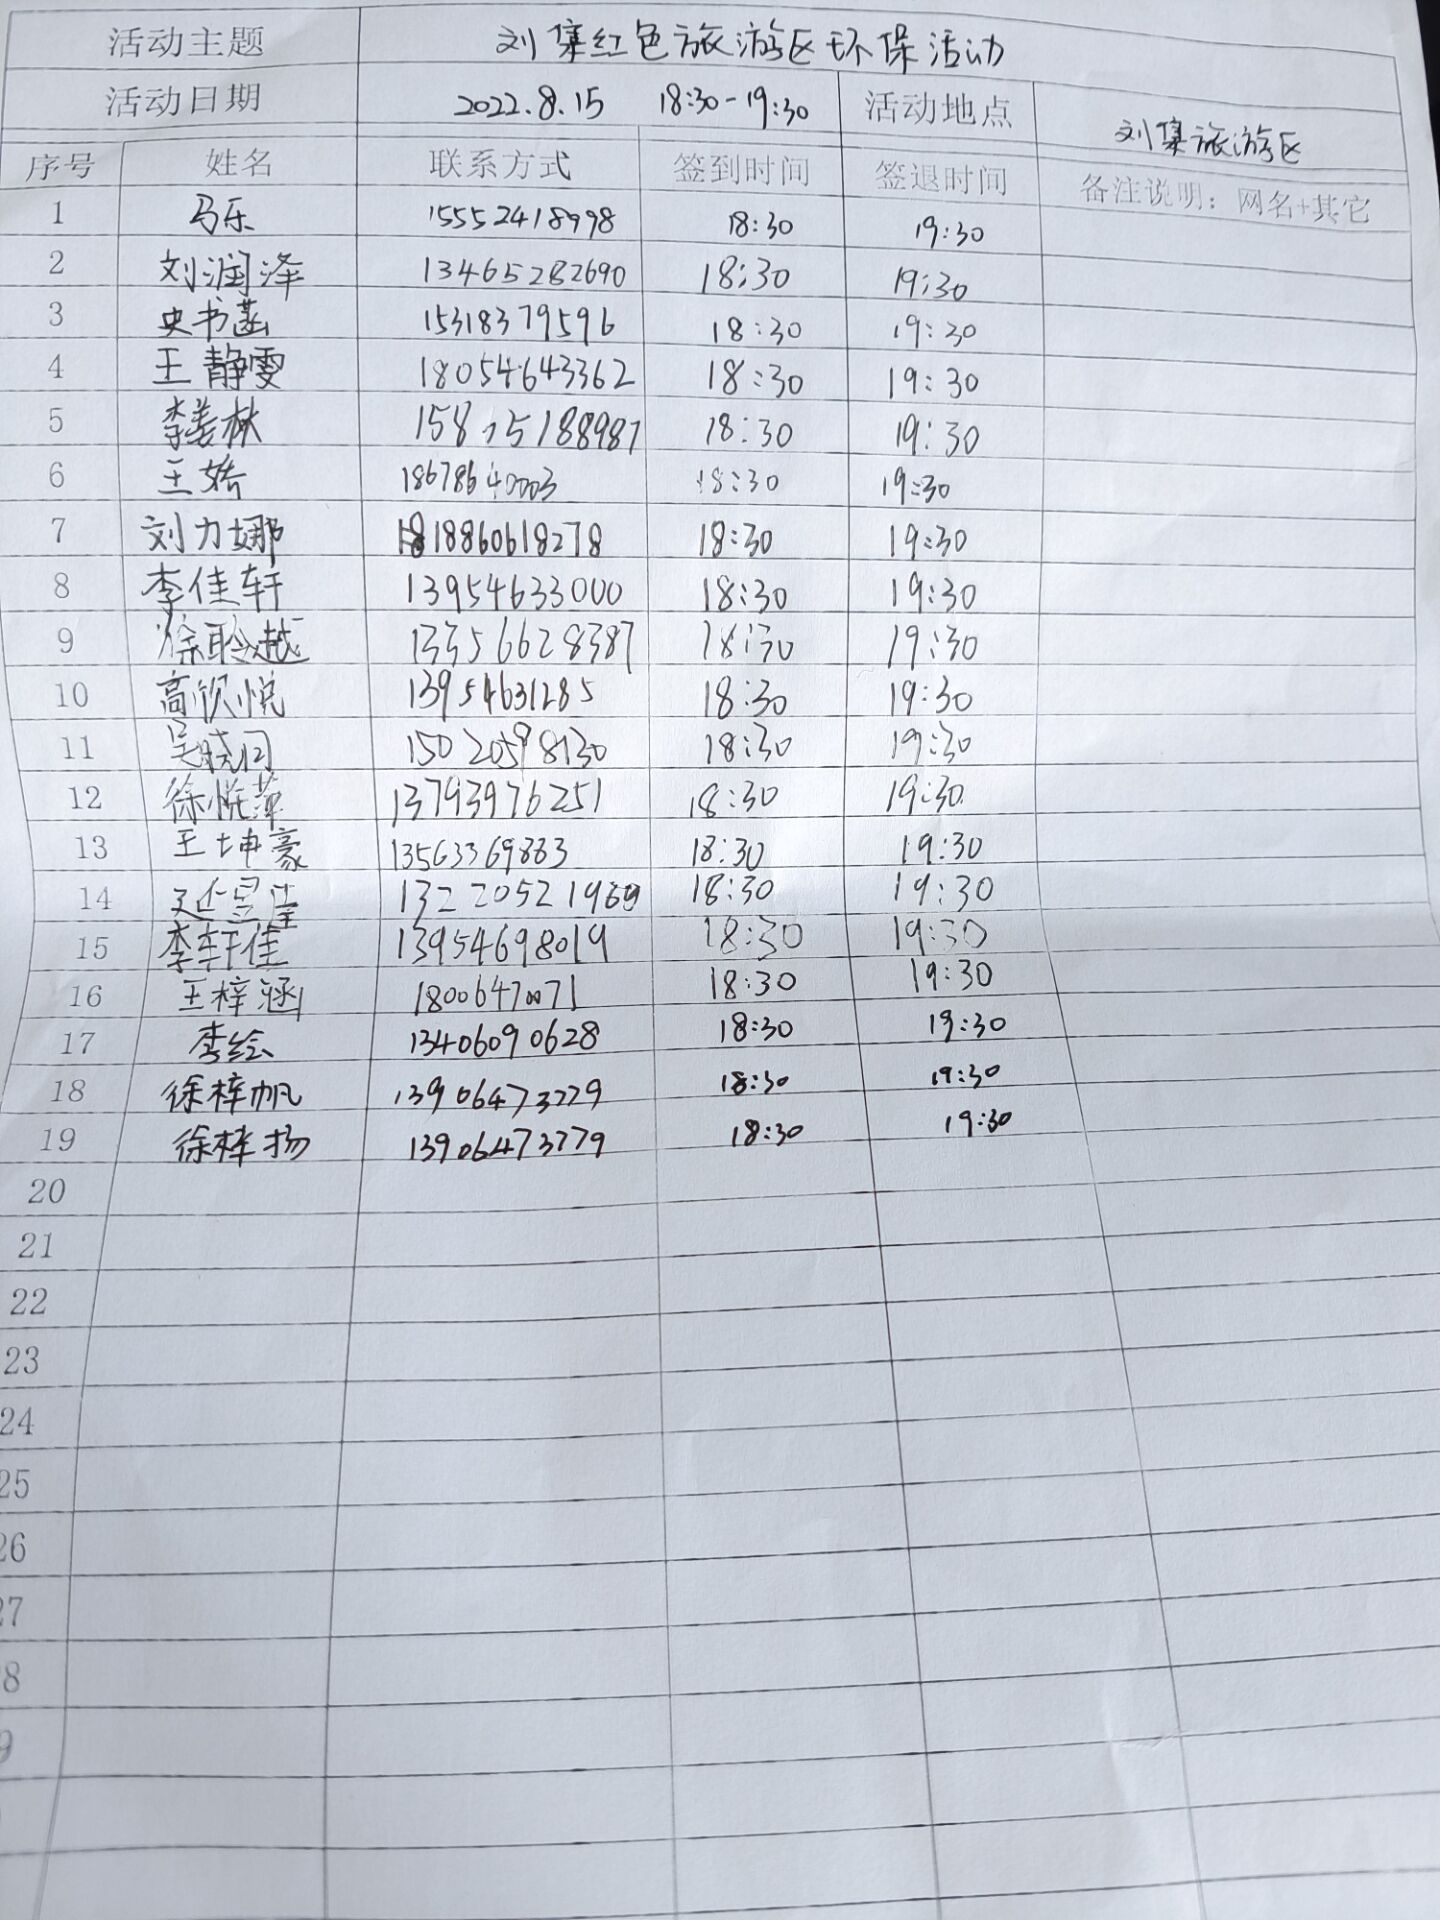 活动主题 刘集红色旅游区环保活动
活动日期 2022.8.15 18:30-19:30 活动地点 刘集旅游区
序号 姓名 联系方式 签到时间 签退时间 备注说明：网名+其它
1 马乐 15552418998 18:30 19:30
2 刘润泽 13465282690 18:30 19:30
3 史书菡 15318379596 18:30 19:30
4 王静雯 18054643362 18:30 19:30
5 李姜林 18:30 19:30
6 王娇 18678640003 18:30 19:30
7 刘力娜 18860618278 18:30 19:30
8 李佳轩 13954633000 18:30 19:30
9 徐聆越 13356628387 18:30 19:30
10 高钦悦 13954631285 18:30 19:30
11 吴晓闫 15020598130 18:30 19:30
12 徐悦萍 13793976251 18:30 19:30
13 王坤豪 13563369883 18:30 19:30
14 18:30 19:30
15 李轩佳 13954698019 18:30 19:30
16 王梓涵 18006470071 18:30 19:30
17 李绘 13406090628 18:30 19:30
18 徐梓帆 13906473779 18:30 19:30
19 徐梓扬 13906473779 18:30 19:30
20
21
22
23
24
25
26
27
8
9